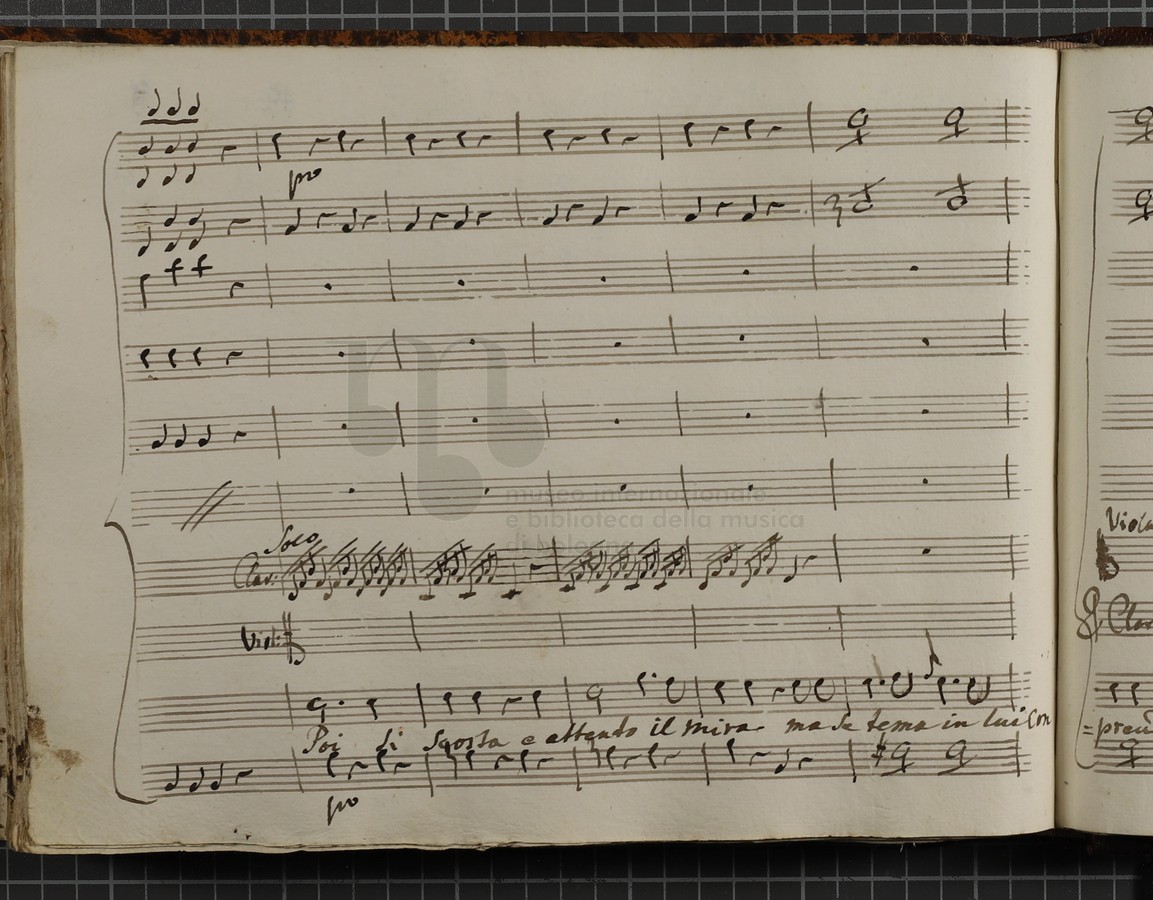 pmo
museo internazionale
e biblioteca della musica
di bologna
Solo
Clar:
Viol:
Viola
Clar
Poi si scosta e attento il mira ma se tema in lui con
pmo